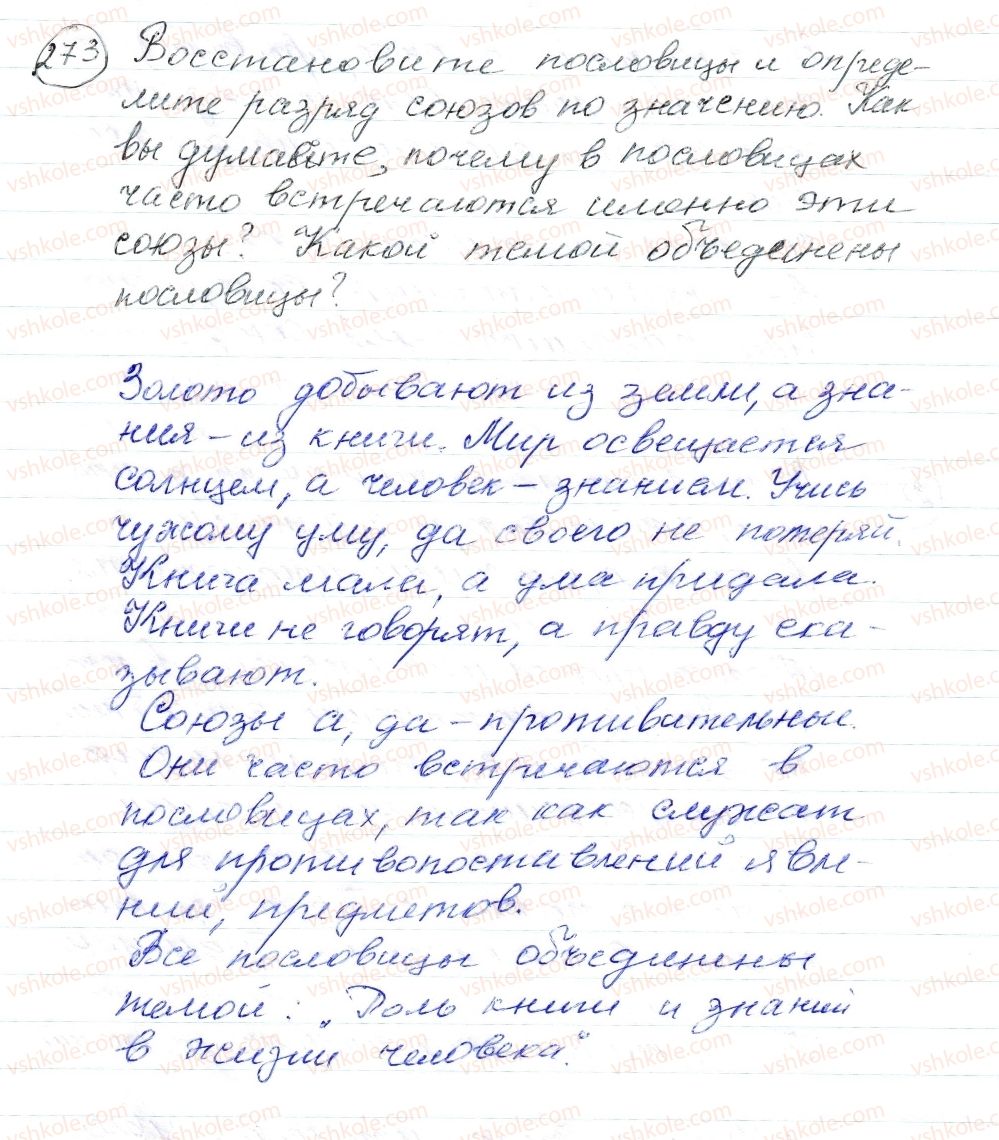 273 Восстановите пословицы и опреде-
лите разряд союзов по значению. Как
вы думаете, почему в пословицах
часто встречаются именно эти
союзы? Какой темой объединены
пословицы?
Золото добывают из земли, а зна-
ния – из книги. Мир освещается
солнцем, а человек – знанием. Учись
чужому уму, да своего не потеряй.
Книга мала, а ума придала.
Книги не говорят, а правду ска-
зывают.
Союзы а, да – противительные.
Они часто встречаются в
пословицах, так как служат
для противопоставлений явле-
ний, предметов.
Все пословицы объединены
темой: „Роль книги и знаний
в жизни человека".